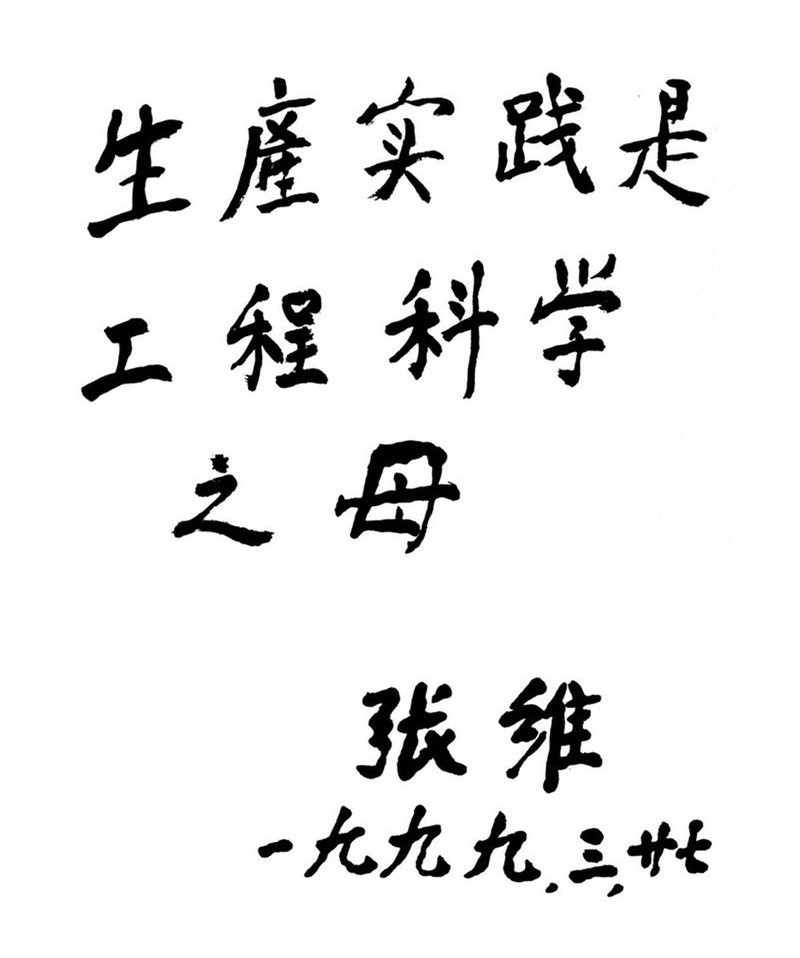 生產实践是
工程科学
之母
张维
一九九九.三,廿七